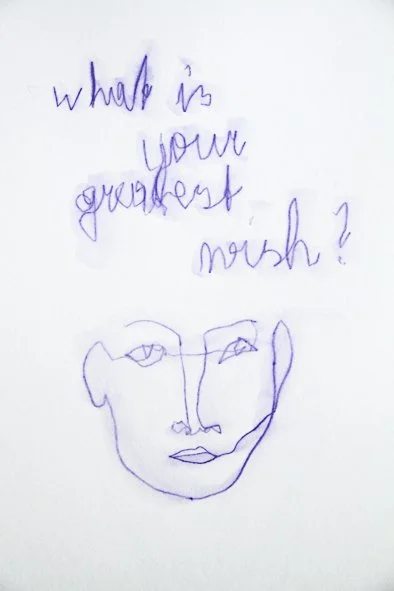 what is
your
greatest
wish?